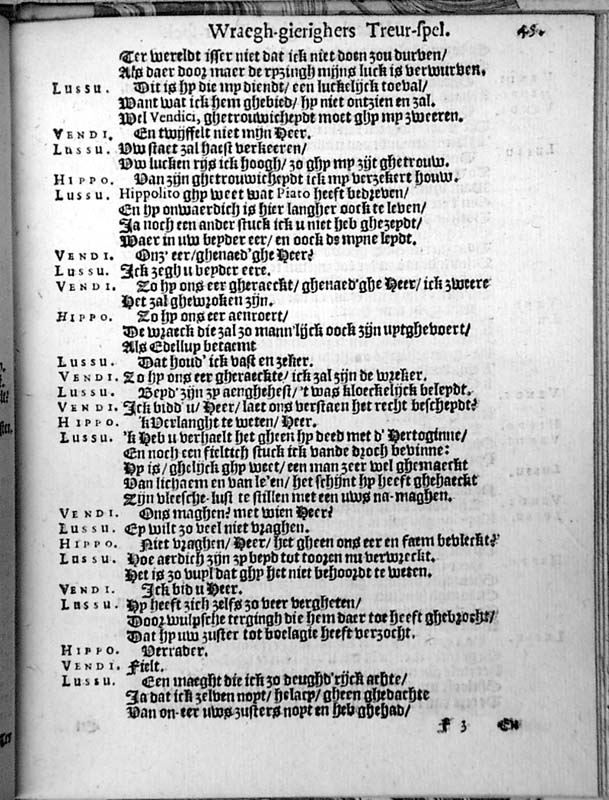 Wraegh-gierighers Treur-spel. 45.
Ter wereldt isser niet dat ick niet doen zou durven/
Als daer door maer de ryzingh mijns luck is verwurven.
Lussu. Dit is hy die my diendt/ een luckelijck toeval/
Want wat ick hem ghebied/ hy niet ontzien en zal.
Wel Vendici, ghetrouwicheydt moet ghy my zweeren.
Vendi. En twyffelt niet mijn Heer.
Lussu. Uw staet zal haest verkeeren/
Uw lucken rijs ick hoogh/ zo ghy my zijt ghetrouw.
Hippo. Van zijn ghetrouwicheydt ick my verzekert houw.
Lussu. Hippolito ghy weet wat Piato heeft bedreven/
En hy onwaerdich is hier langher oock te leven/
Ja noch een ander stuck ick u niet heb ghezeydt/
Waer in uw beyder eer/ en oock de myne leydt.
Vendi. Onz' eer/ghenaed'ghe Heer?
Lussu. Ick zegh u beyder eere.
Vendi. Zo hy ons eer gheraeckt/ ghenaed'ghe Heer/ ick zweere
Het zal ghewroken zijn.
Hippo. Zo hy ons eer aenroert/
De wraeck die zal zo mann'lijck oock zijn uytghevoert/
Als Edellup betaemt
Lussu. Dat houd' ick vast en zeker.
Vendi. Zo hy ons eer gheraeckte/ ick zal zijn de wreker.
Lussu. Beyd' zijn zy aenghehest/ 't was kloeckelijck beleydt.
Vendi. Ick bidd' u/ Heer/ laet ons verstaen het recht bescheydt?
Hippo. 'k Verlanght te weten/ Heer.
Lussu. 'k Heb u verhaelt het gheen hy deed met d' Hertoginne/
En noch een fieltsch stuck ick vande droch bevinne:
Hy is/ ghelijck ghy weet/ een man zeer wel ghemaeckt
Van lichaem en van le'en/ het schijnt hy heeft ghehaeckt
Zijn vleesche-lust te stillen met een uws na-maghen.
Vendi. Ons maghen? met wien Heer?
Lussu. Ey wilt zo veel niet vraghen.
Hippo. Niet vraghen/ Heer/ het gheen ons eer en faem bevleckt?
Lussu. Hoe aerdich zijn zy beyd tot tooren nu verwreckt.
Het is zo vuyl dat ghy het niet behoordt te weten.
Vendi. Ick bid u Heer.
Lussu. Hy heeft zich zelfs zo veer vergheten/
Door wulpsche tergingh die hem daer toe heeft ghebrocht/
Dat hy uw zuster tot boelagie heeft verzocht.
Hippo. Verrader.
Vendi. Fielt.
Lussu. Een maeght die ick zo deughd'rijck achte/
Ja dat ick zelven noyt/ helacy/ gheen ghedachte
Van on-eer uws zusters noyt en heb ghehad/
F 3 En